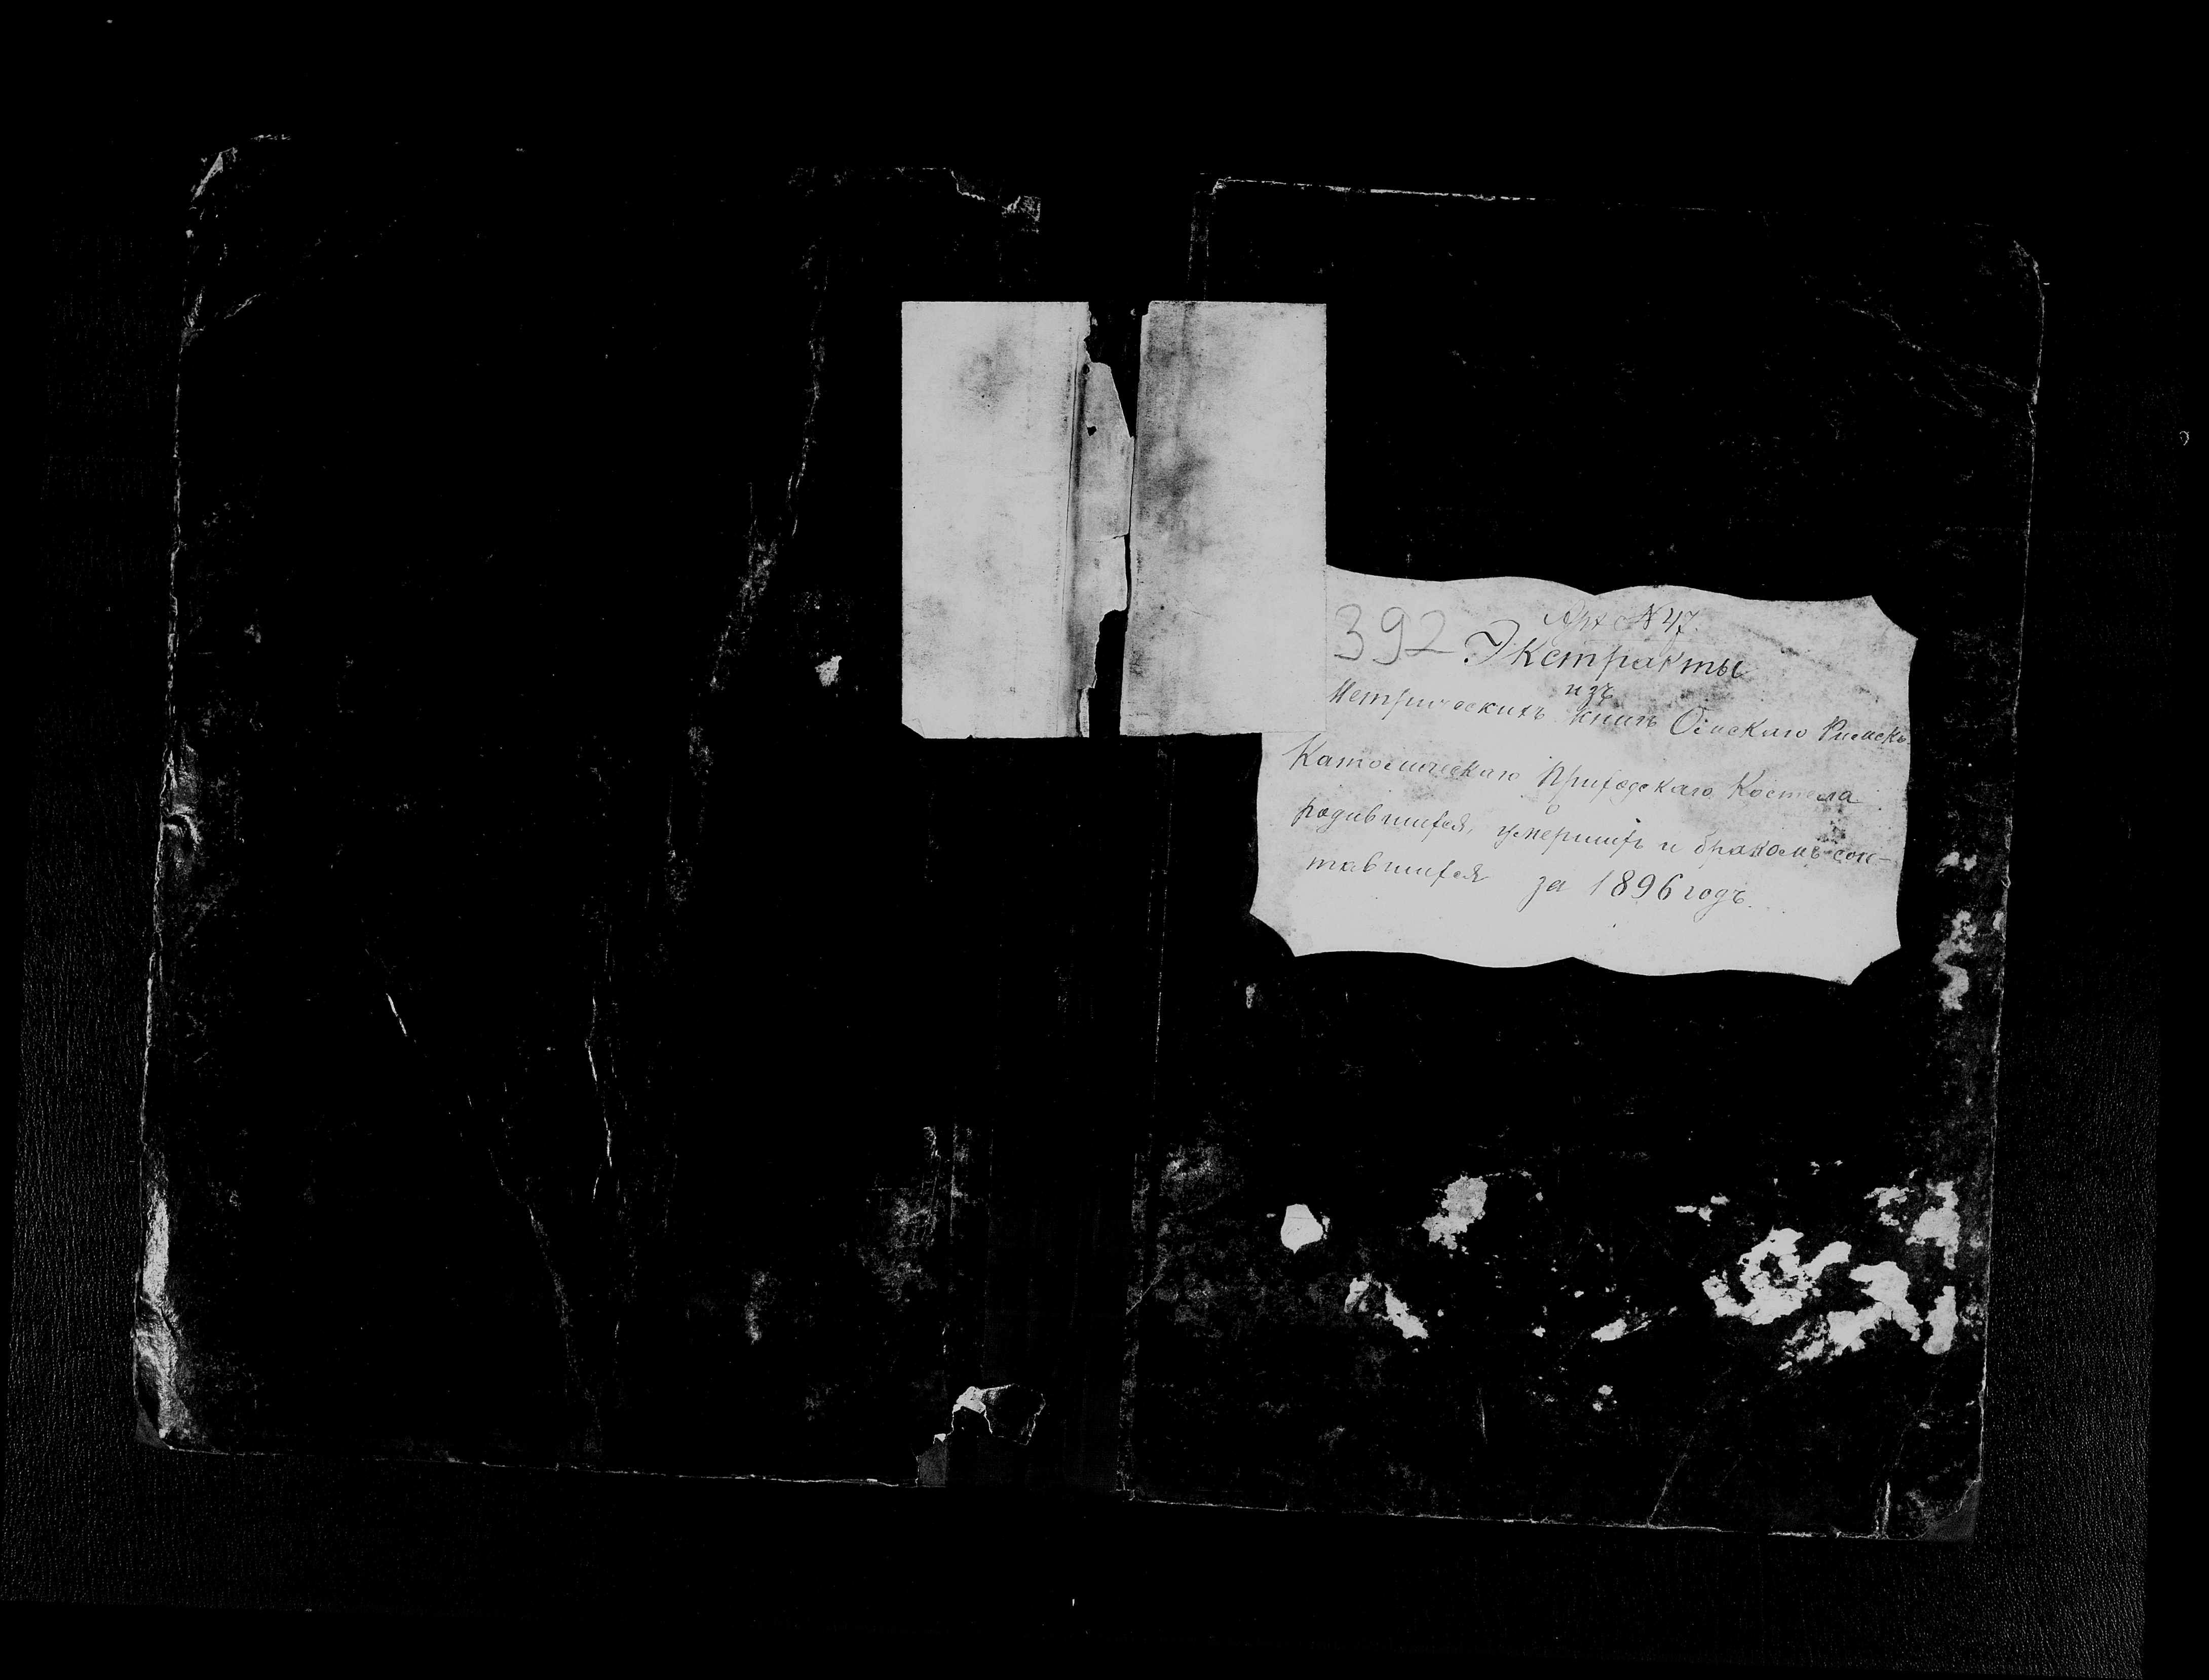 Арх № 47.
392 Экстракты
изъ
Метрическихъ книгъ Римско
Католическаго Приходскаго Костела
о
родившихся, умершихъ и бракомъ соче-
тавшихся за 1896 годъ.